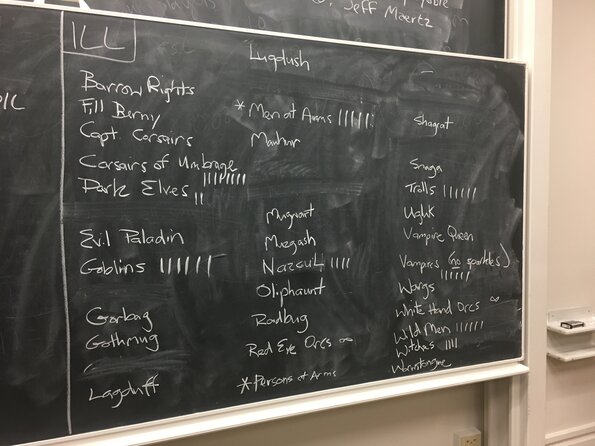 Jeff Maertz
ILL
Barrow Rights
Fill Berny
Capt Corsairs
Corsairs of Umbrage
Dark Elves
Evil Paladin
Goblins
Gorbag
Gothmug
Lagduff
Lugdush
* Men at Arms
Mauhur
Muzgash
Nazcul
Oliphaunt
Radbug
Red Eye Orcs ∞
* Persons at Arms
Shagrat
Snaga
Trolls
Ugluk
Vampire Queen
Vampires (no sparkles)
Wargs
White Hand Orcs ∞
Wild Men
Witches